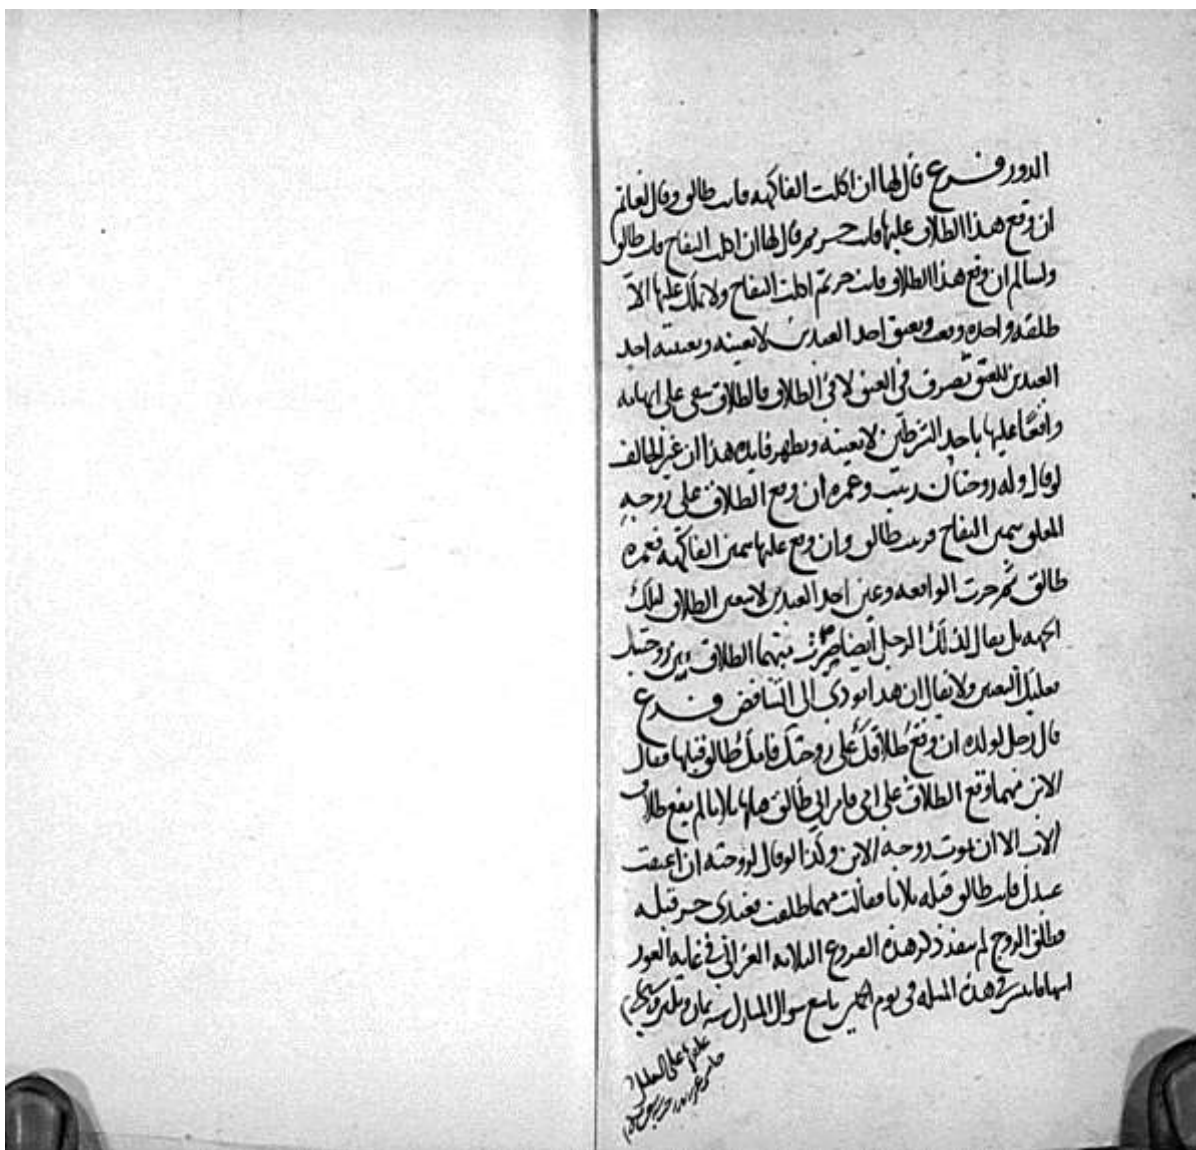 الدور فرع قال لها ان اكلت الفاكهه فانت طالق وقال لغانم
ان وقع هذا الطلاق عليها فانت حر ثم قال لها ان اكلت التفاح فانت طالق
ولسالم ان وقع هذا الطلاق فانت حر ثم اكلت التفاح ولا يملك عليها الا
طلقه واحده وقعت ويعتق احد العبدين لا بعينه وتعيينه احد
العبدين للعتق تصرف في العتق لا في الطلاق فالطلاق يبقى على ابهامه
واقعا عليها باحد الشرطين لا بعينه ويظهر فايده هذا ان غير الحالف
لو قال وله زوجتان زينب وعمره ان وقع الطلاق على زوجه
المعلق بيمين التفاح فزينب طالق وان وقع عليها بيمين الفاكهه فعمره
طالق ثم جرت الواقعه وعين احد العبدين لا يتعين الطلاق لتلك
الجهه بل يقال لذلك الرجل ايضا الطلاق بين زوجتيك
فعليك التعيين ولا يقال ان هذا يودي الى التناقض فرع
قال رجل لولده ان وقع طلاقك على زوجتك فامك طالق قبلها فقال
الابن مهما وقع الطلاق على امي فامراتي طالق قبلها ثلاثا لم يقع طلاق
الاب الا ان يموت زوجة الابن وكذا لو قال لزوجته ان اعتقت
عبدك فانت طالق قبله ثلاثا فقالت مهما طلقت فعبدي حر قبله
فطلق الزوج لم ينفذ ذكر هذه الفروع الثلاثه الغزالي في غايه الغور
في هذه المسله في يوم تاسع شوال المبارك سنه ثمان